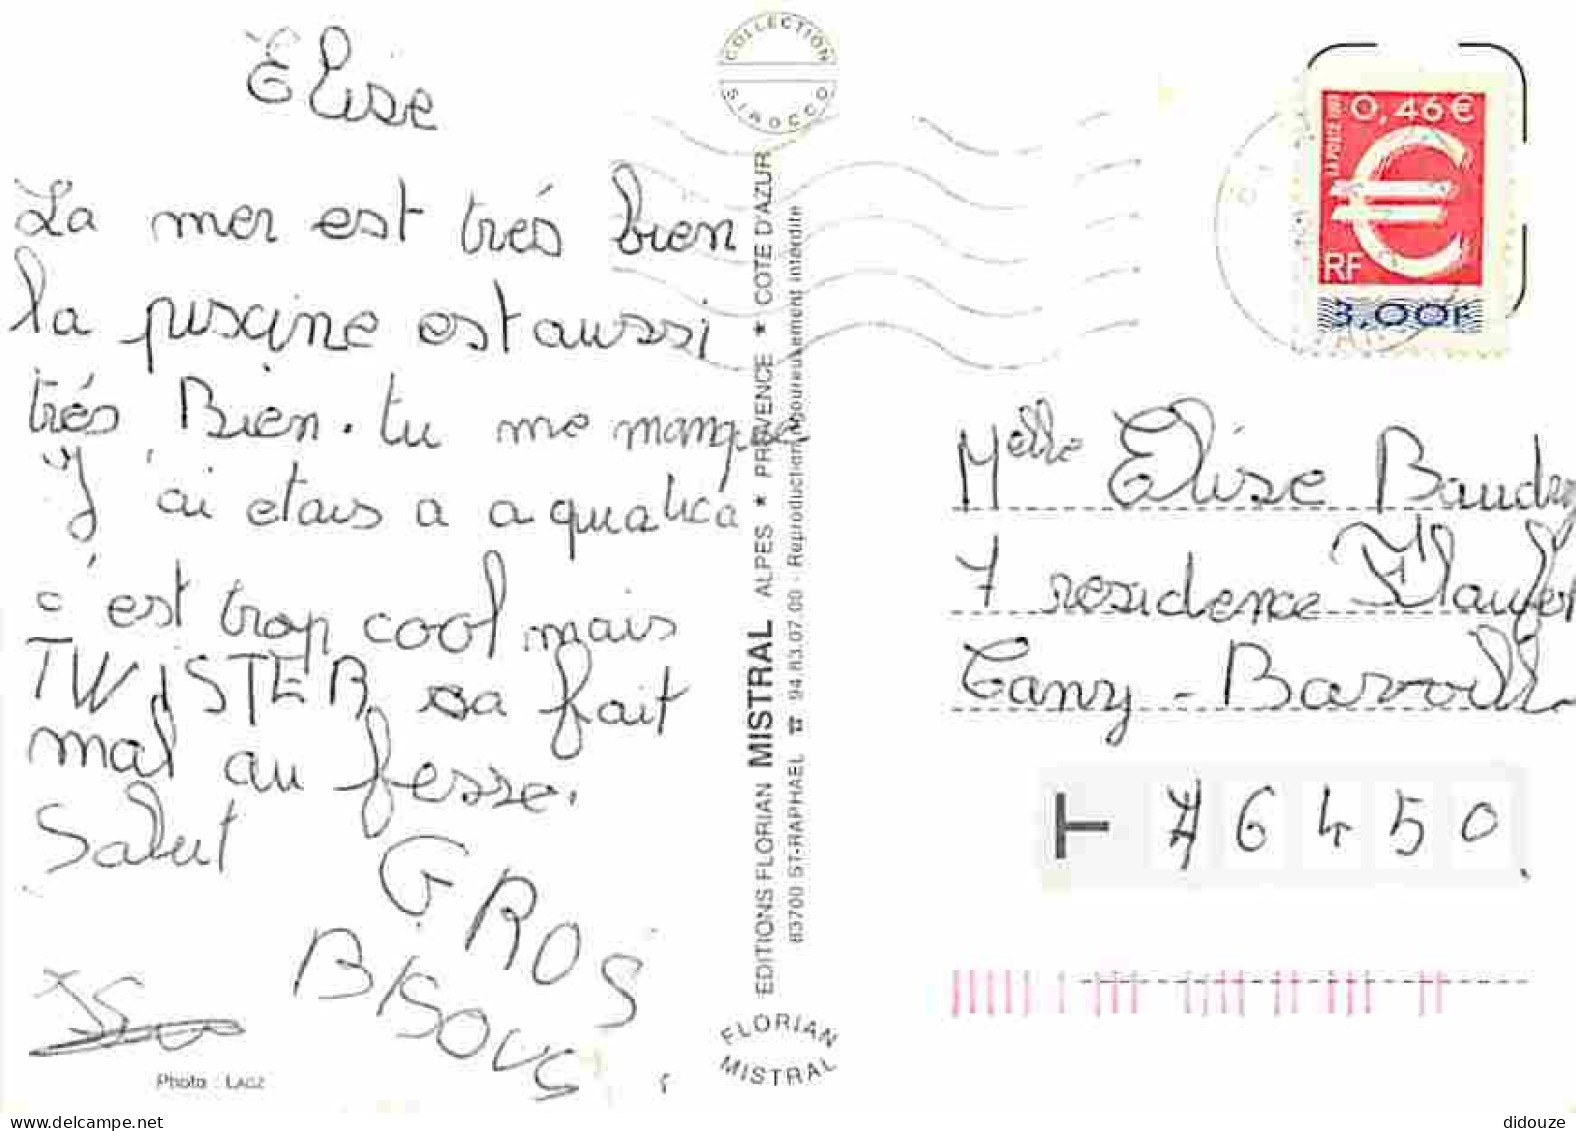 Elise
La mer est trés bien
la piscine est aussi
trés Bien. tu me manque
J'ai etais a aquatica
c'est trop cool mais
TWiSTER sa fait
mal au fesse.
Salut
GROS
BISOUS
Photo : LACZ
COLLECTION
SIROCCO
EDITIONS FLORIAN MISTRAL ALPES * PROVENCE * COTE D'AZUR
83700 ST-RAPHAEL ☎ 94.83.07.00 - Reproduction rigoureusement interdite
FLORIAN
MISTRAL
0,46 €
LA POSTE 1999
RF
3,00F
Melle Elise Baudry
7 residence
Cany - Barville
76450
delcampe.net
didouze